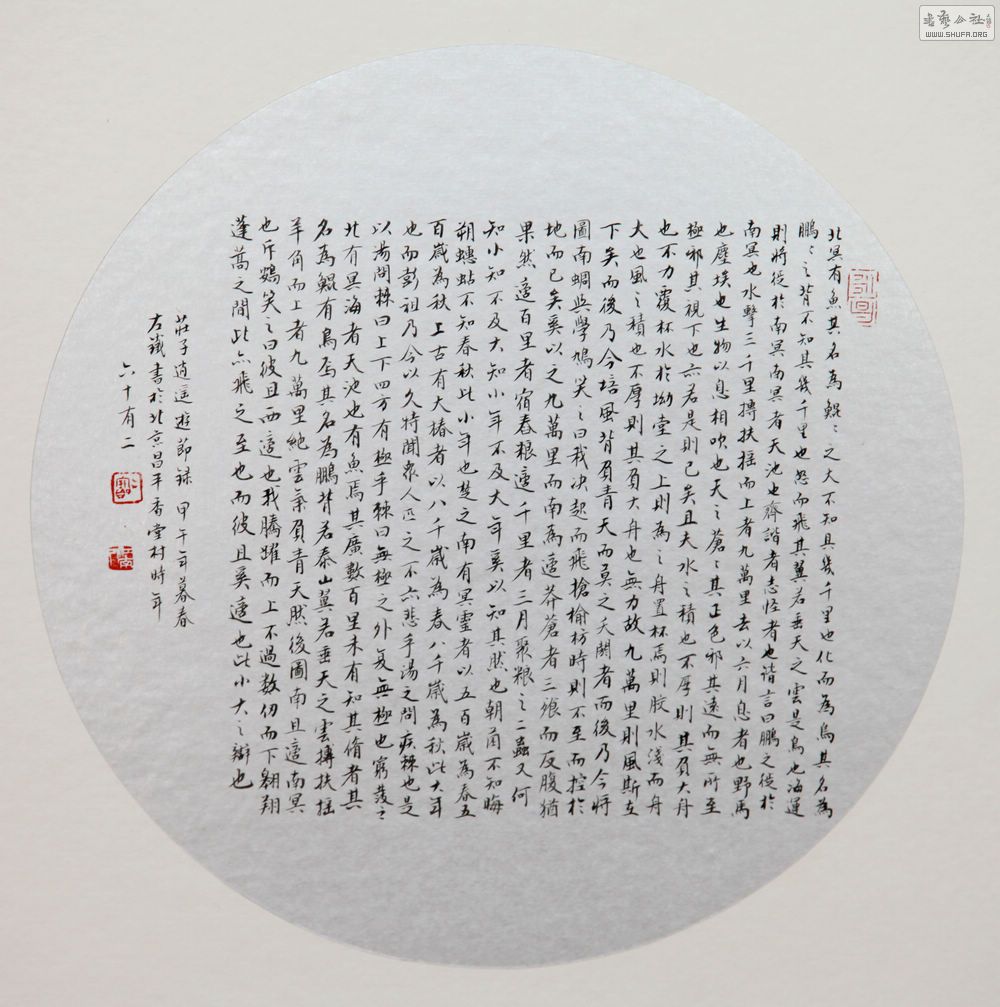 北冥有魚其名為鯤〻之大不知其幾千里也化而為鳥其名為
鵬〻之背不知其幾千里也怒而飛其翼若垂天之雲是鳥也海運
則將徙於南冥南冥者天池也齊諧者志怪者也諧言曰鵬之徙於
南冥也水擊三千里摶扶搖而上者九萬里去以六月息者也野馬
也塵埃也生物以息相吹也天之蒼〻其正色邪其遠而無所至
極邪其視下也亦若是則已矣且夫水之積也不厚則其負大舟
也不力覆杯水於坳堂之上則為之舟置杯焉則膠水淺而舟
大也風之積也不厚則其負大舟也無力故九萬里則風斯在
下矣而後乃今培風背負青天而莫之夭閼者而後乃今將
圖南蜩與學鳩笑之曰我決起而飛槍榆枋時則不至而控於
地而已矣奚以之九萬里而南為適莽蒼者三飡而反腹猶
果然適百里者宿舂粮適千里者三月聚粮之二蟲又何
知小知不及大知小年不及大年奚以知其然也朝菌不知晦
朔蟪蛄不知春秋此小年也楚之南有冥靈者以五百歲為春五
百歲為秋上古有大椿者以八千歲為春八千歲為秋此大年
也而彭祖乃今以久特聞眾人匹之不亦悲乎湯之問疾棘也是
以湯問棘曰上下四方有極乎棘曰無極之外复無極也窮發之
北有冥海者天池也有魚焉其廣數百里未有知其脩者其
名為鯤有鳥焉其名為鵬背若泰山翼若垂天之雲摶扶搖
羊角而上者九萬里絕雲氣負青天然後圖南且適南冥
也斥鴳笑之曰彼且西適也我騰躍而上不過数仞而下翱翔
蓬蒿之間此亦飛之至也而彼且奚適也此小大之辯也
莊子逍遥遊節録 甲午年暮春
左鐵書於北京昌平香堂村時年
六十有二
書藝公社
WWW.SHUFA.ORG